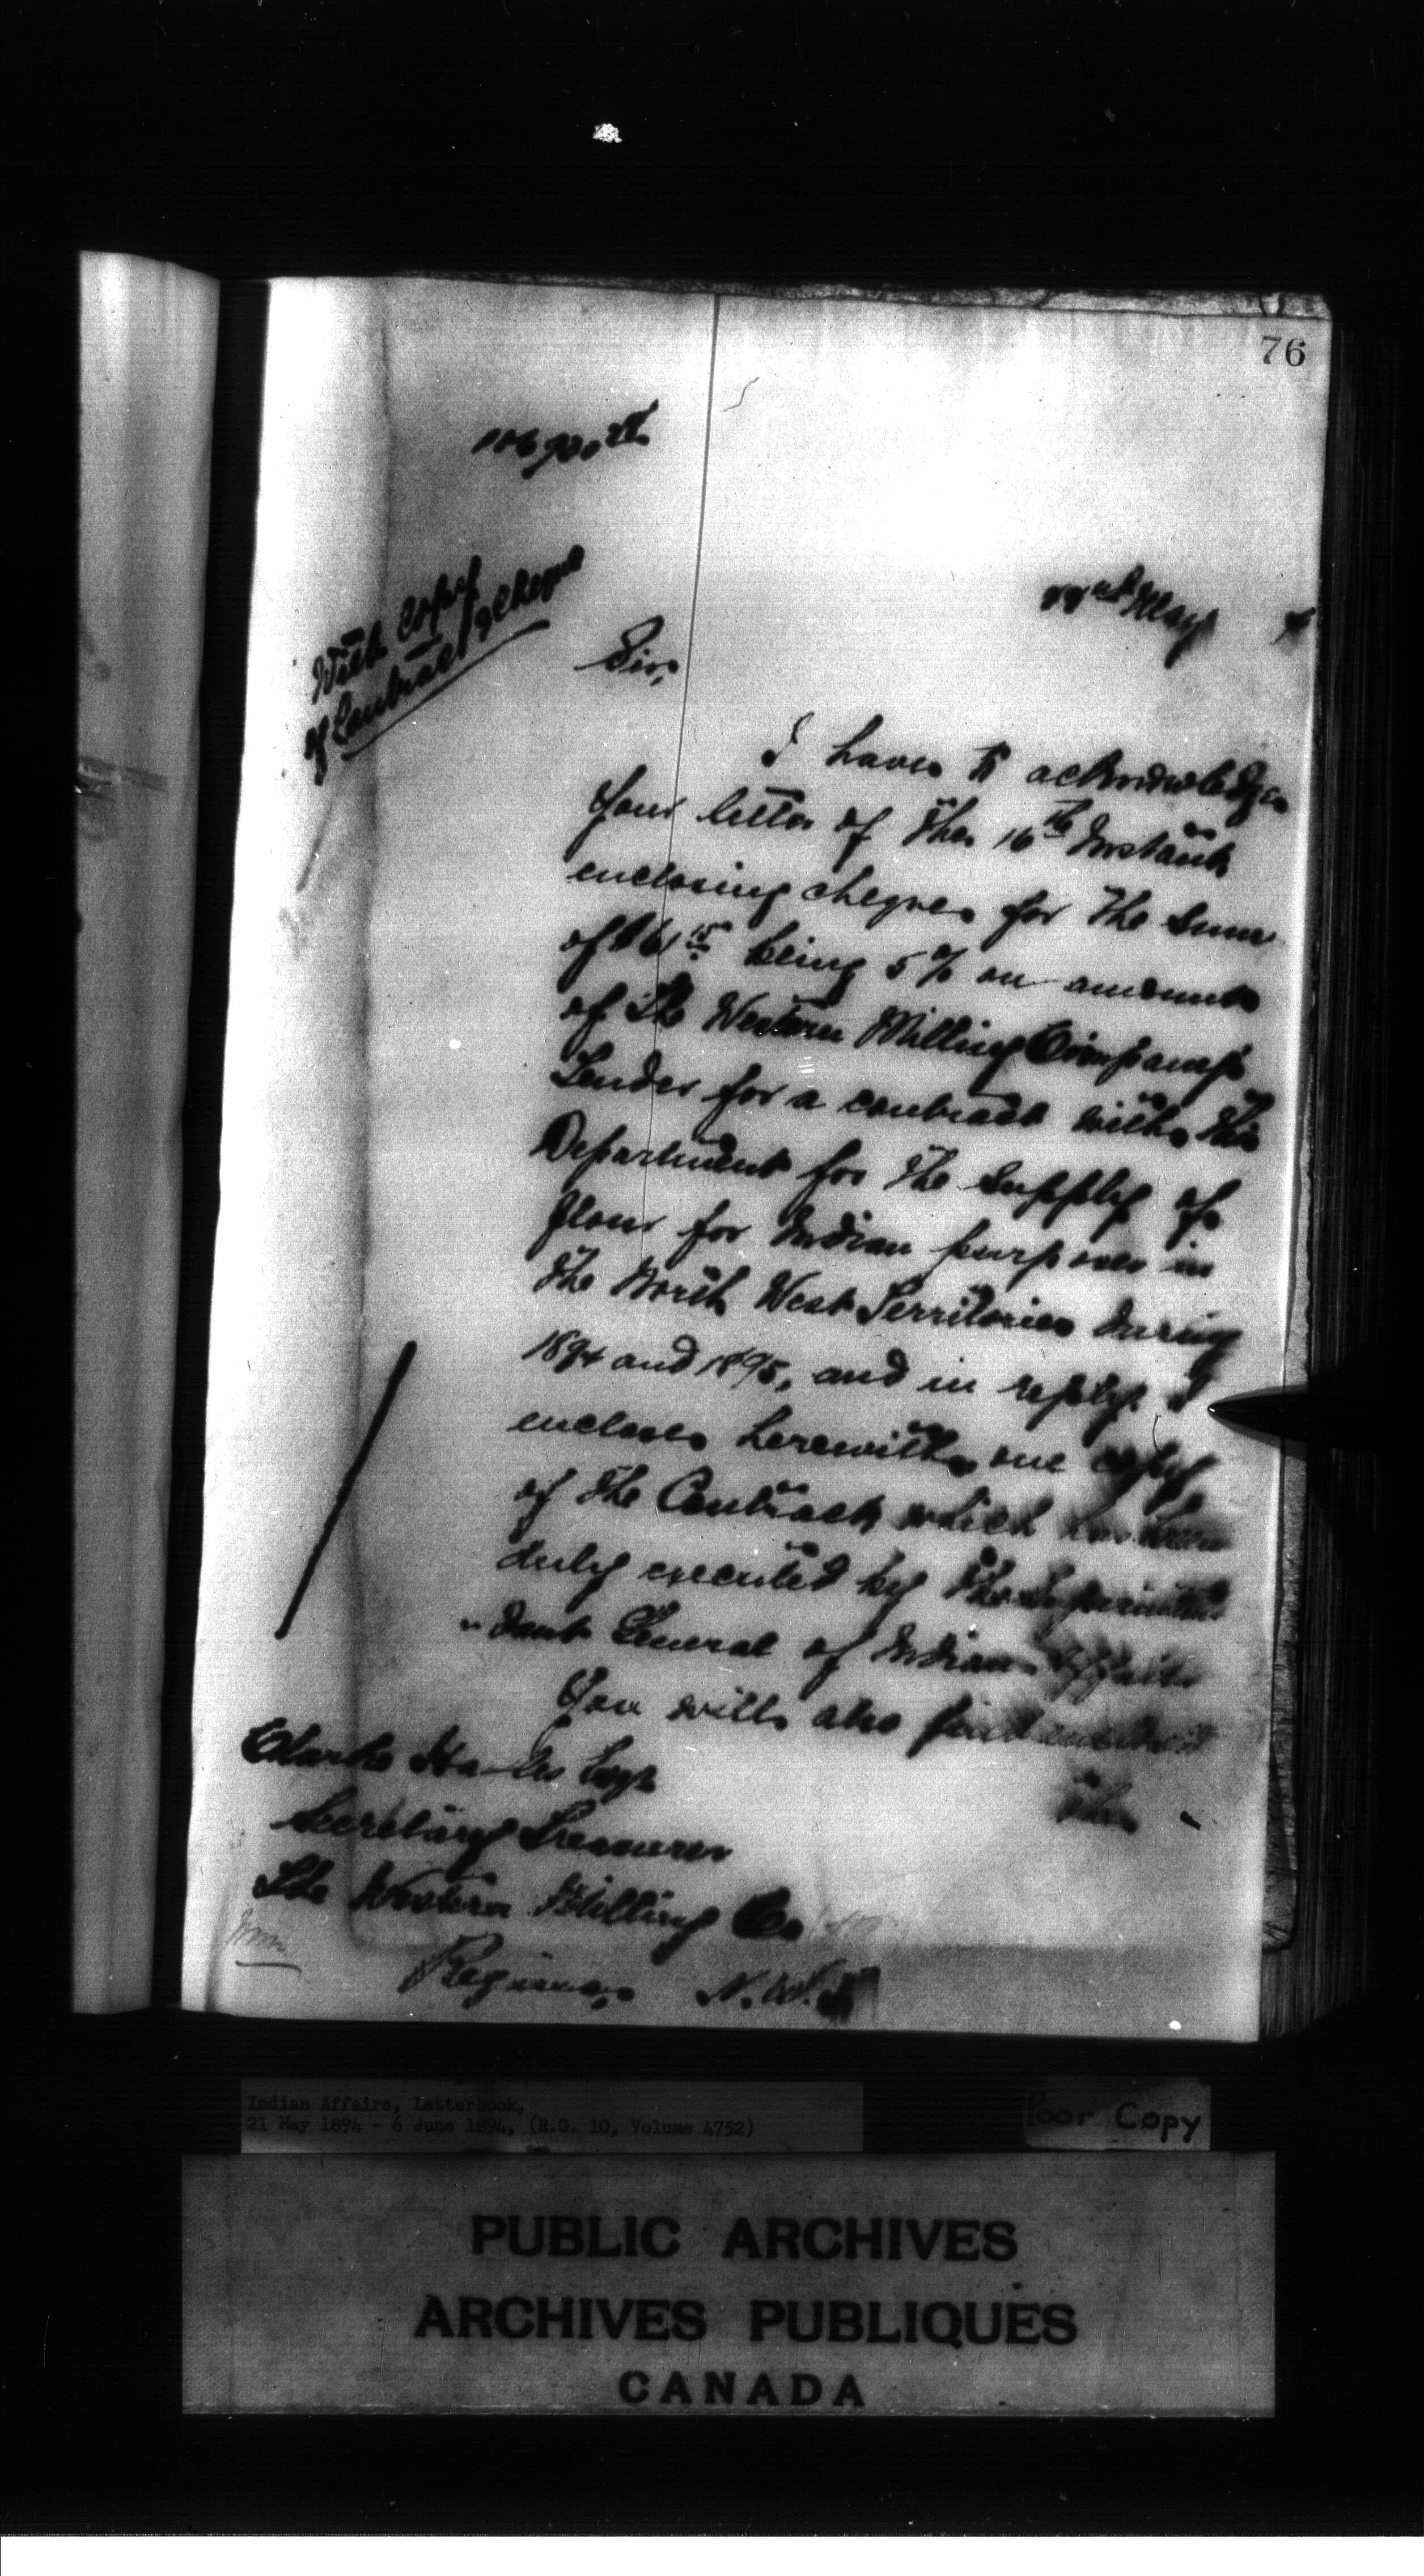 76
With Copy
of Contract & Cheque
May
Sir,
I have to acknowledge
your letter of the 16th Instant
enclosing cheque for the sum
of being 5% on amount
of the Western Milling Company's
Tender for a contract with this
Department for the supply of
flour for Indian purposes in
the North West Territories during
1894 and 1895, and in reply I
enclose herewith one copy
of the Contract which has been
duly executed by the Superinten
"dent General of Indian Affairs
You will also find enclosed
the
Secretary Treasurer
The Western Milling Co
Regina, N.W.T
Indian Affairs, Letterbook,
21 May 1894 - 6 June 1894, (R.G. 10, Volume 4752)
Poor Copy
PUBLIC ARCHIVES
ARCHIVES PUBLIQUES
CANADA